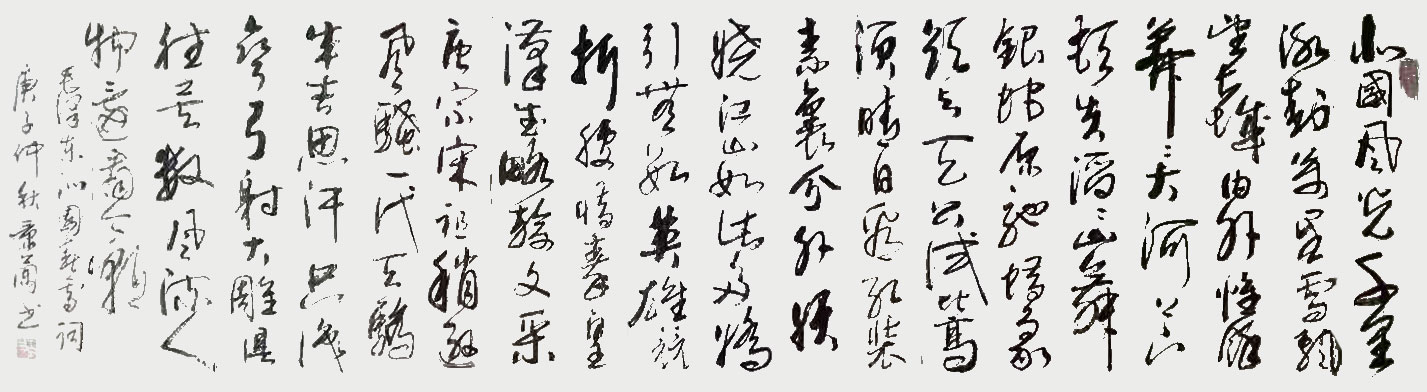 北國風光千里
冰封萬里雪飄
望長城內外惟餘
莽莽大河上下
頓失滔滔山舞
銀蛇原馳蠟象
欲与天公試比高
須晴日看紅裝
素裹分外妖
嬈江山如此多嬌
引無數英雄競
折腰惜秦皇
漢武略輸文采
唐宗宋祖稍遜
風騷一代天驕
成吉思汗只識
彎弓射大雕俱
往矣數風流人
物還看今朝
毛澤東沁園春雪詞
庚子仲秋书